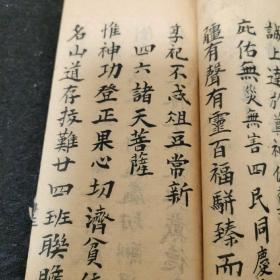 謁上達於蓋神
庇佑無災無害四民同慶
疆有聲有靈百福駢臻而
尊祀不忒俎豆常新
四六諸天菩薩
惟神功登正果心切濟貧
名山道存救難廿四班聯